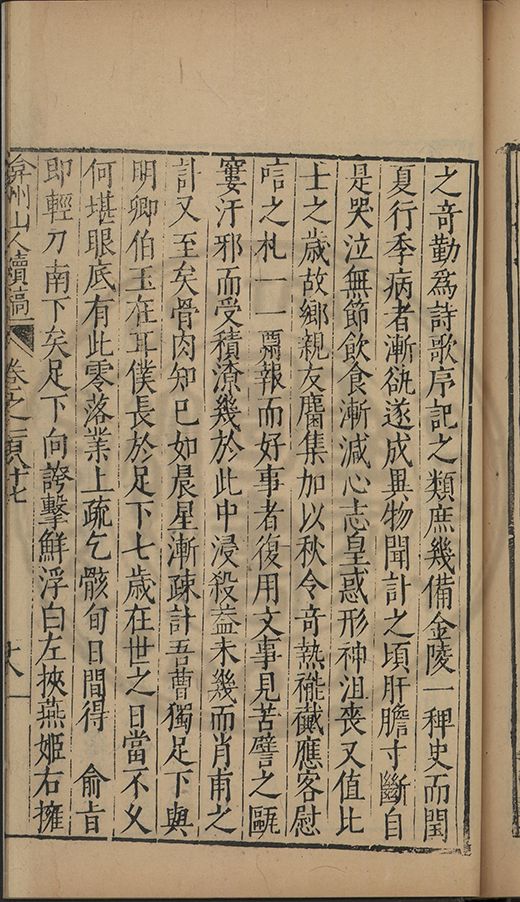 之奇勤爲詩歌序記之類庶幾備金陵一稗史而閏
夏行季病者漸欲遂成異物聞訃之頃肝膽寸斷自
是哭泣無節飲食漸減心志皇惑形神沮喪又值比
士之歲故鄉親友麕集加以秋令奇熱褦襶應客慰
唁之札一一報而好事者復用文事見苦譬之甌
窶汙邪而受積潦幾於此中浸殺葢未幾而肖甫之
訃又至矣骨肉知已如晨星漸疎計吾曹獨足下與
明卿伯玉在耳僕長於足下七歲在世之日當不乆
何堪眼底有此零落業上疏乞骸旬日間得 俞㫖
即輕刀南下矣足下向誇擊鮮浮白左挾燕姬右擁
弇州山人續稿 卷之一百八十七 十八